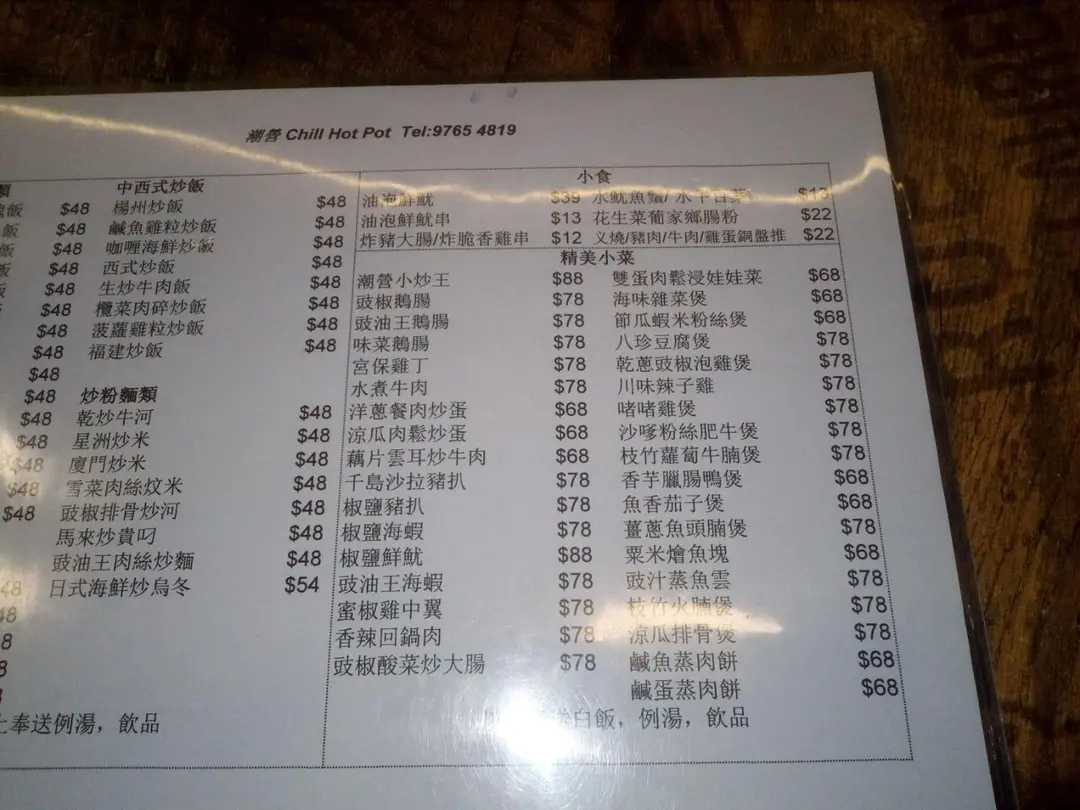 潮營 Chill Hot Pot Tel:9765 4819
類
飯 $48
飯 $48
飯 $48
飯 $48
飯 $48
$48
$48
$48
$48
$48
$48
$48
$48
$48
$48
48
48
8
8
中西式炒飯
楊州炒飯 $48
鹹魚雞粒炒飯 $48
咖喱海鮮炒飯 $48
西式炒飯 $48
生炒牛肉飯 $48
欖菜肉碎炒飯 $48
菠蘿雞粒炒飯 $48
福建炒飯 $48
炒粉麵類
乾炒牛河 $48
星洲炒米 $48
廈門炒米 $48
雪菜肉絲炆米 $48
豉椒排骨炒河 $48
馬來炒貴叼 $48
豉油王肉絲炒麵 $48
日式海鮮炒烏冬 $54
奉送例湯，飲品
小食
油泡鮮魷 $39 水魷魚鬚/ $13
油泡鮮魷串 $13 花生菜葡家鄉腸粉 $22
炸豬大腸/炸脆香雞串 $12 义燒/豬肉/牛肉/雞蛋銅盤推 $22
精美小菜
潮營小炒王 $88 雙蛋肉鬆浸娃娃菜 $68
豉椒鵝腸 $78 海味雜菜煲 $68
豉油王鵝腸 $78 節瓜蝦米粉絲煲 $68
味菜鵝腸 $78 八珍豆腐煲 $78
宮保雞丁 $78 乾蔥豉椒泡雞煲 $78
水煮牛肉 $78 川味辣子雞 $78
洋蔥餐肉炒蛋 $68 啫啫雞煲 $78
涼瓜肉鬆炒蛋 $68 沙嗲粉絲肥牛煲 $78
藕片雲耳炒牛肉 $68 枝竹蘿蔔牛腩煲 $78
千島沙拉豬扒 $78 香芋臘腸鴨煲 $68
椒鹽豬扒 $78 魚香茄子煲 $68
椒鹽海蝦 $78 薑蔥魚頭腩煲 $78
椒鹽鮮魷 $88 粟米燴魚塊 $68
豉油王海蝦 $78 豉汁蒸魚雲 $78
蜜椒雞中翼 $78 枝竹火腩煲 $78
香辣回鍋肉 $78 涼瓜排骨煲 $78
豉椒酸菜炒大腸 $78 鹹魚蒸肉餅 $68
鹹蛋蒸肉餅 $68
白飯，例湯，飲品